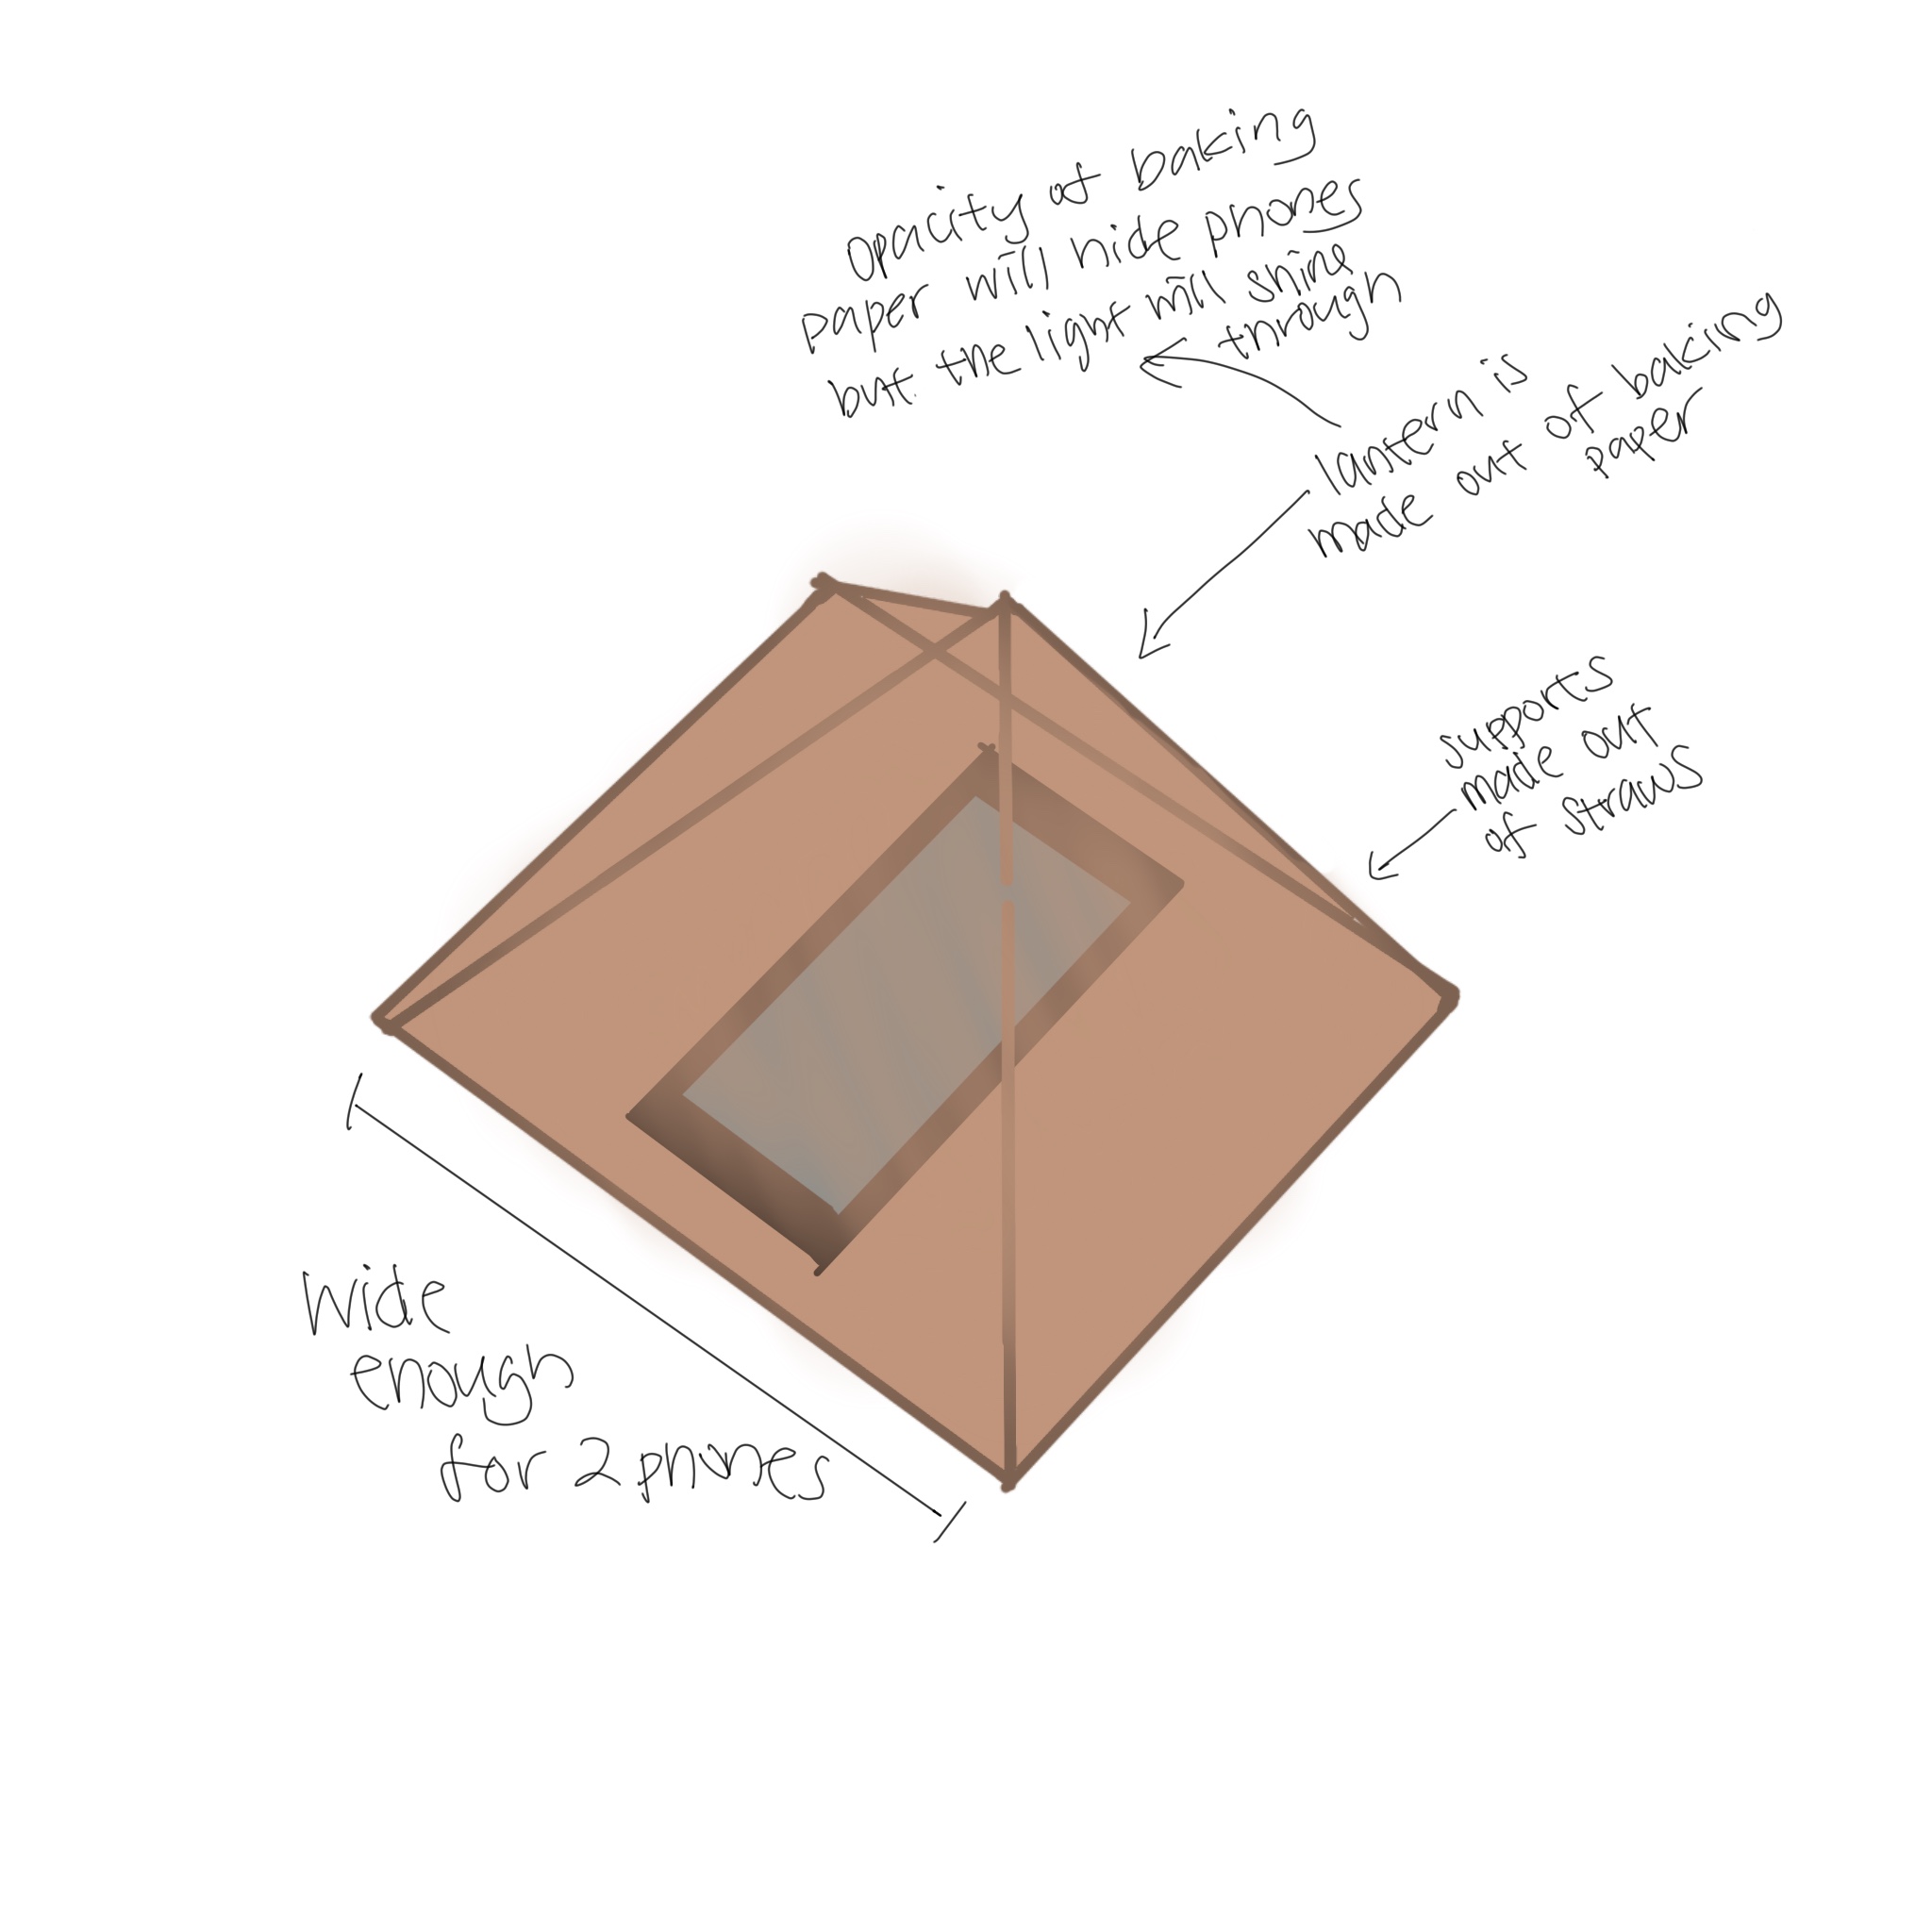 opacity of baking
paper will hide phones
but the light will shine
through
lantern is
made out of baking
paper
supports
made out
of straws
Wide
enough
for 2 phones